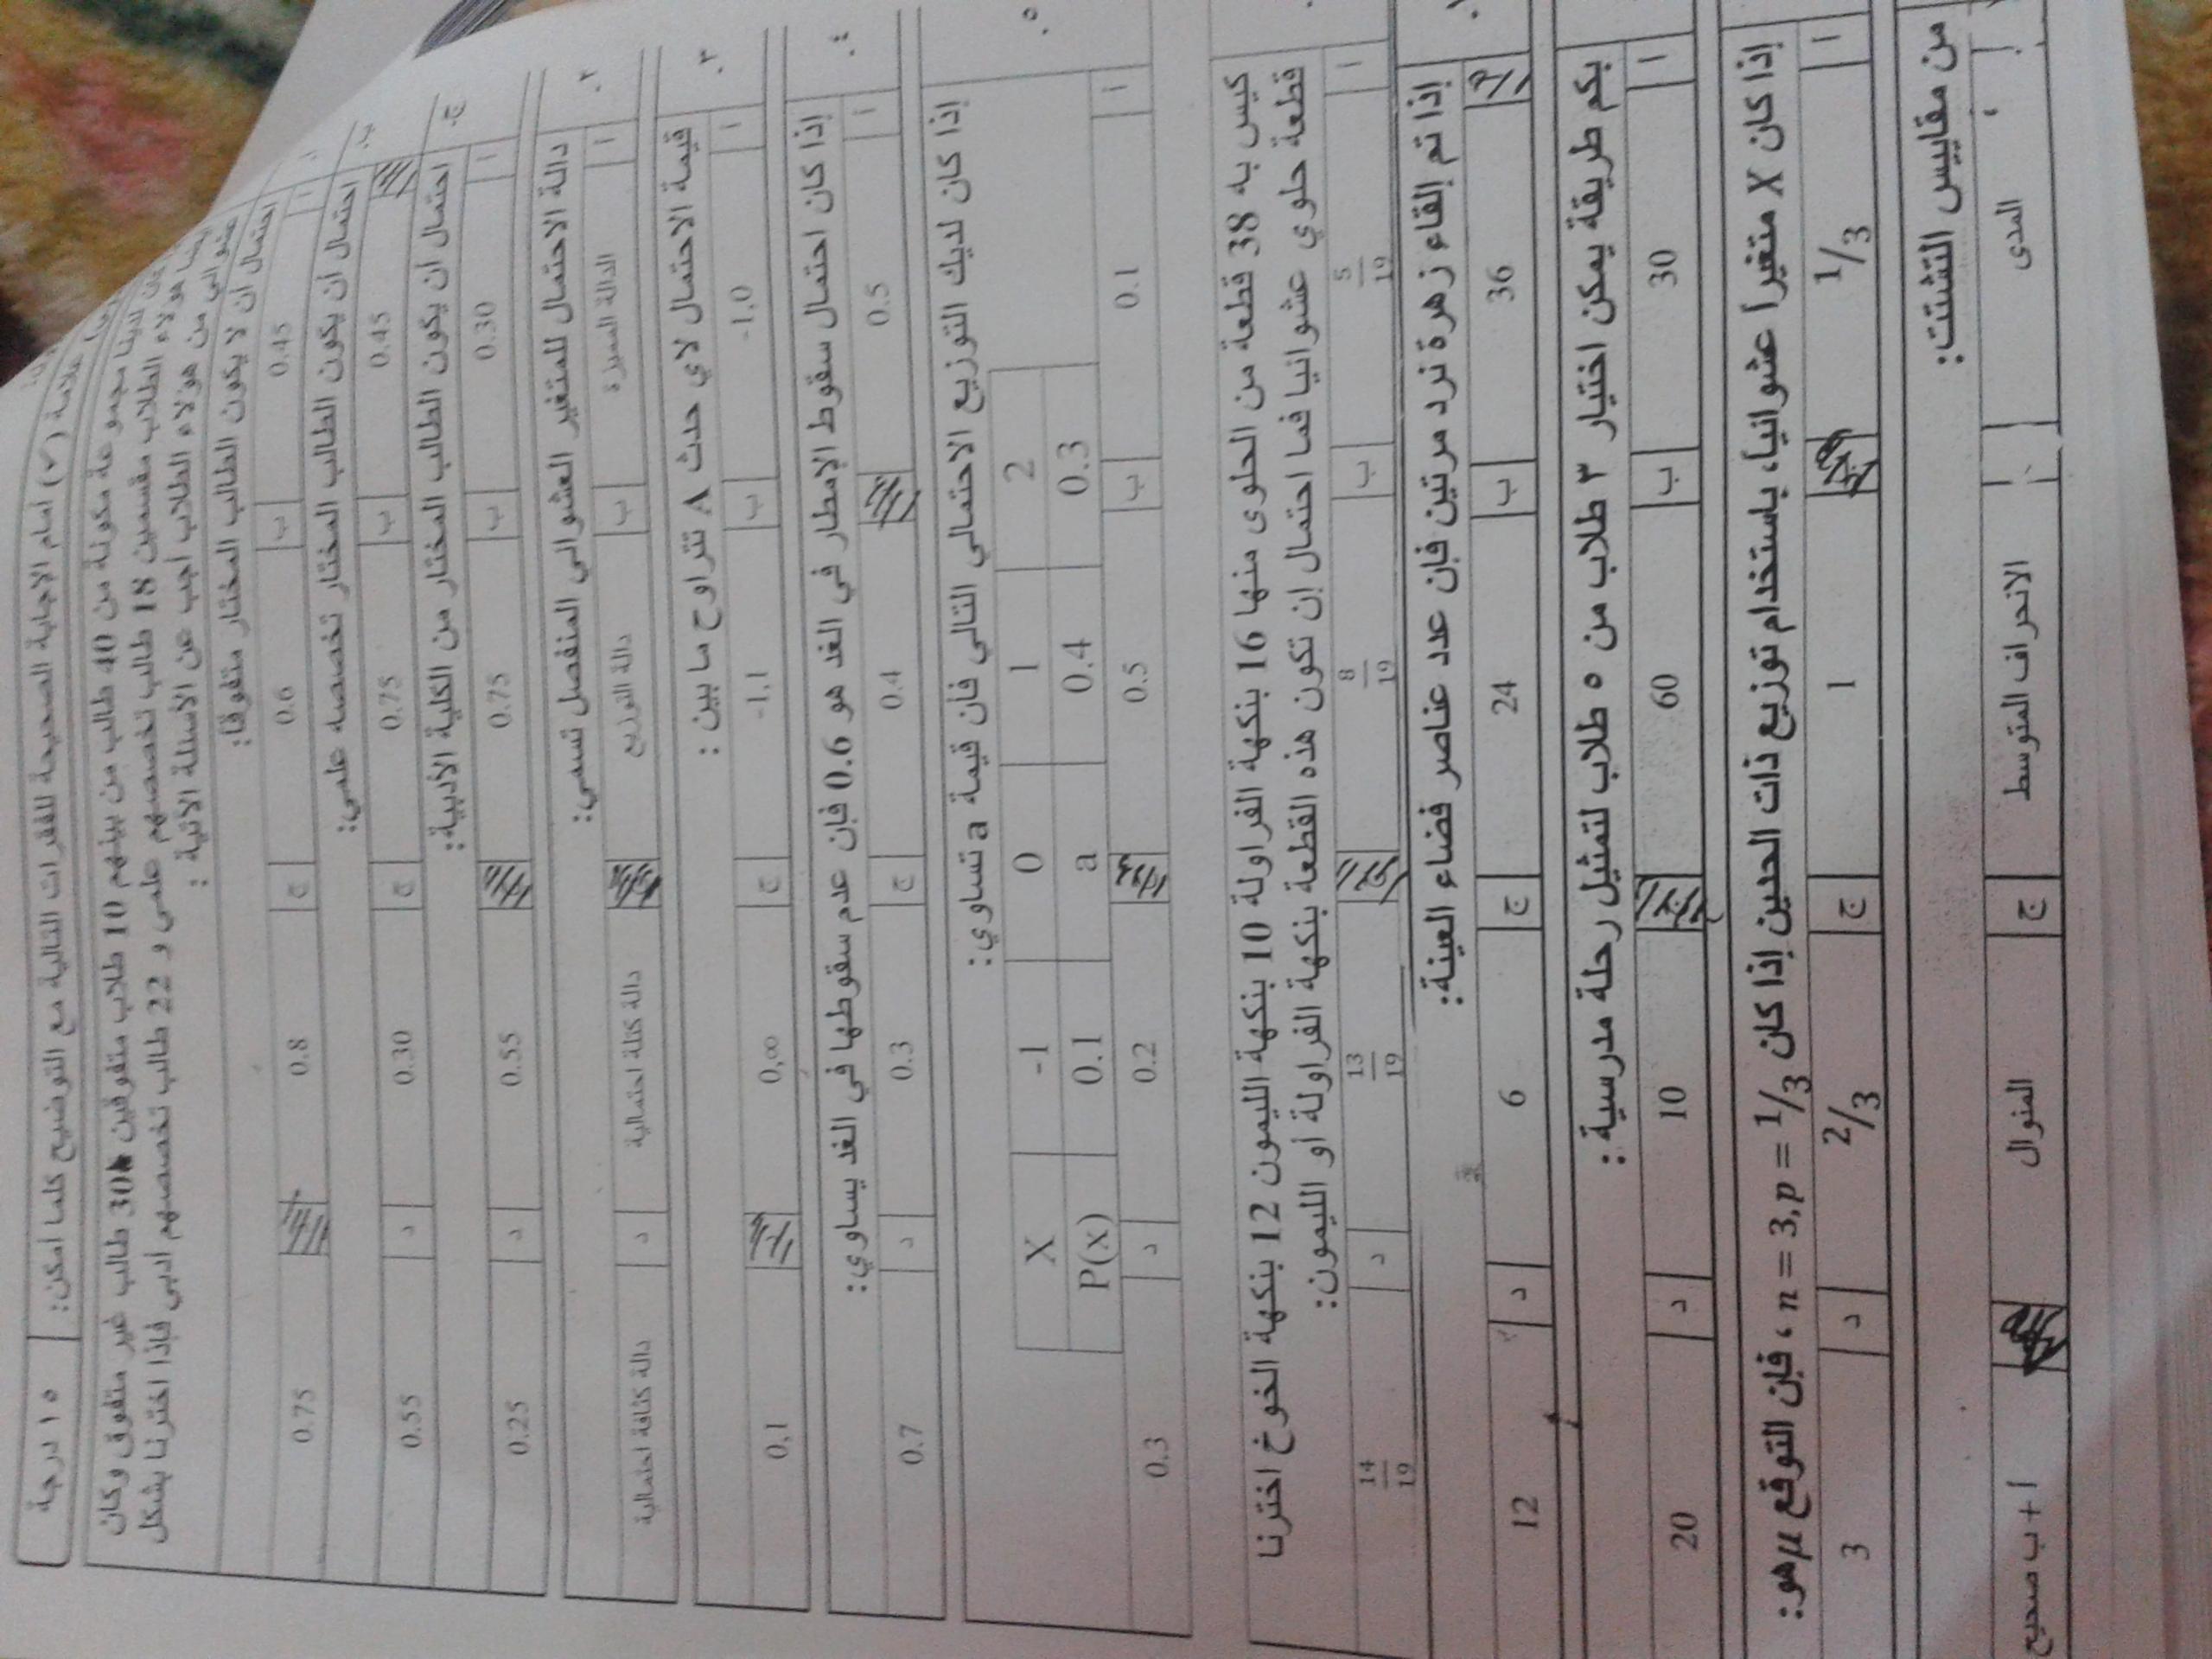 ١٥ درجة
علامة (✓) امام الاجابة الصحيحة للفقرات التالية مع التوضيح كلما أمكن:
لدينا مجموعة مكونة من 40 طالب من بينهم 10 طلاب متفوقين 30 طالب غير متفوق وكان
هؤلاء الطلاب مقسمين 18 طالب تخصصهم علمي و 22 طالب تخصصهم ادبي فإذا اخترنا بشكل
عشوائي من هؤلاء الطلاب اجب عن الاسئلة الاتية :
احتمال ان لا يكون الطالب المختار متفوقا:
ا 0.45 ب 0.6 ج 0.8 0.75
ب. احتمال أن يكون الطالب المختار تخصصه علمي:
0.45 ب 0.75 ج 0.30 د 0.55
ج. احتمال ان يكون الطالب المختار من الكلية الأدبية:
ا 0.30 ب 0.75 0.55 د 0.25
٢. دالة الاحتمال للمتغير العشوائي المنفصل تسمى:
ا الدالة المميزة ب دالة التوزيع دالة كتلة احتمالية د دالة كثافة احتمالية
٣. قيمة الاحتمال لاي حدث A تتراوح ما بين :
ا -1,0 ب -1,1 ج 0,∞ 0,1
٤. إذا كان احتمال سقوط الامطار في الغد هو 0.6 فإن عدم سقوطها في الغد يساوي:
ا 0.5 0.4 ج 0.3 د 0.7
٥. إذا كان لديك التوزيع الاحتمالي التالي فأن قيمة a تساوي:
X -1 0 1 2
P(x) 0.1 a 0.4 0.3
ا 0.1 ب 0.5 0.2 د 0.3
كيس به 38 قطعة من الحلوى منها 16 بنكهة الفراولة 10 بنكهة الليمون 12 بنكهة الخوخ اخترنا
قطعة حلوي عشوائيا فما احتمال إن تكون هذه القطعة بنكهة الفراولة أو الليمون:
ا 5/19 ب 8/19 ج 13/19 د 14/19
إذا تم إلقاء زهرة نرد مرتين فإن عدد عناصر فضاء العينة:
36 ب 24 ج 6 د 12
بكم طريقة يمكن اختيار ٣ طلاب من ٥ طلاب لتمثيل رحلة مدرسية:
ا 30 ب 60 ج 10 د 20
إذا كان X متغيراً عشوائياً، باستخدام توزيع ذات الحدين إذا كان n = 3, p = 1/3 ، فإن التوقع μ هو:
ا 1/3 1 ج 2/3 د 3
من مقاييس التشتت:
ا المدى ب الانحراف المتوسط ج المنوال ا + ب صحيح